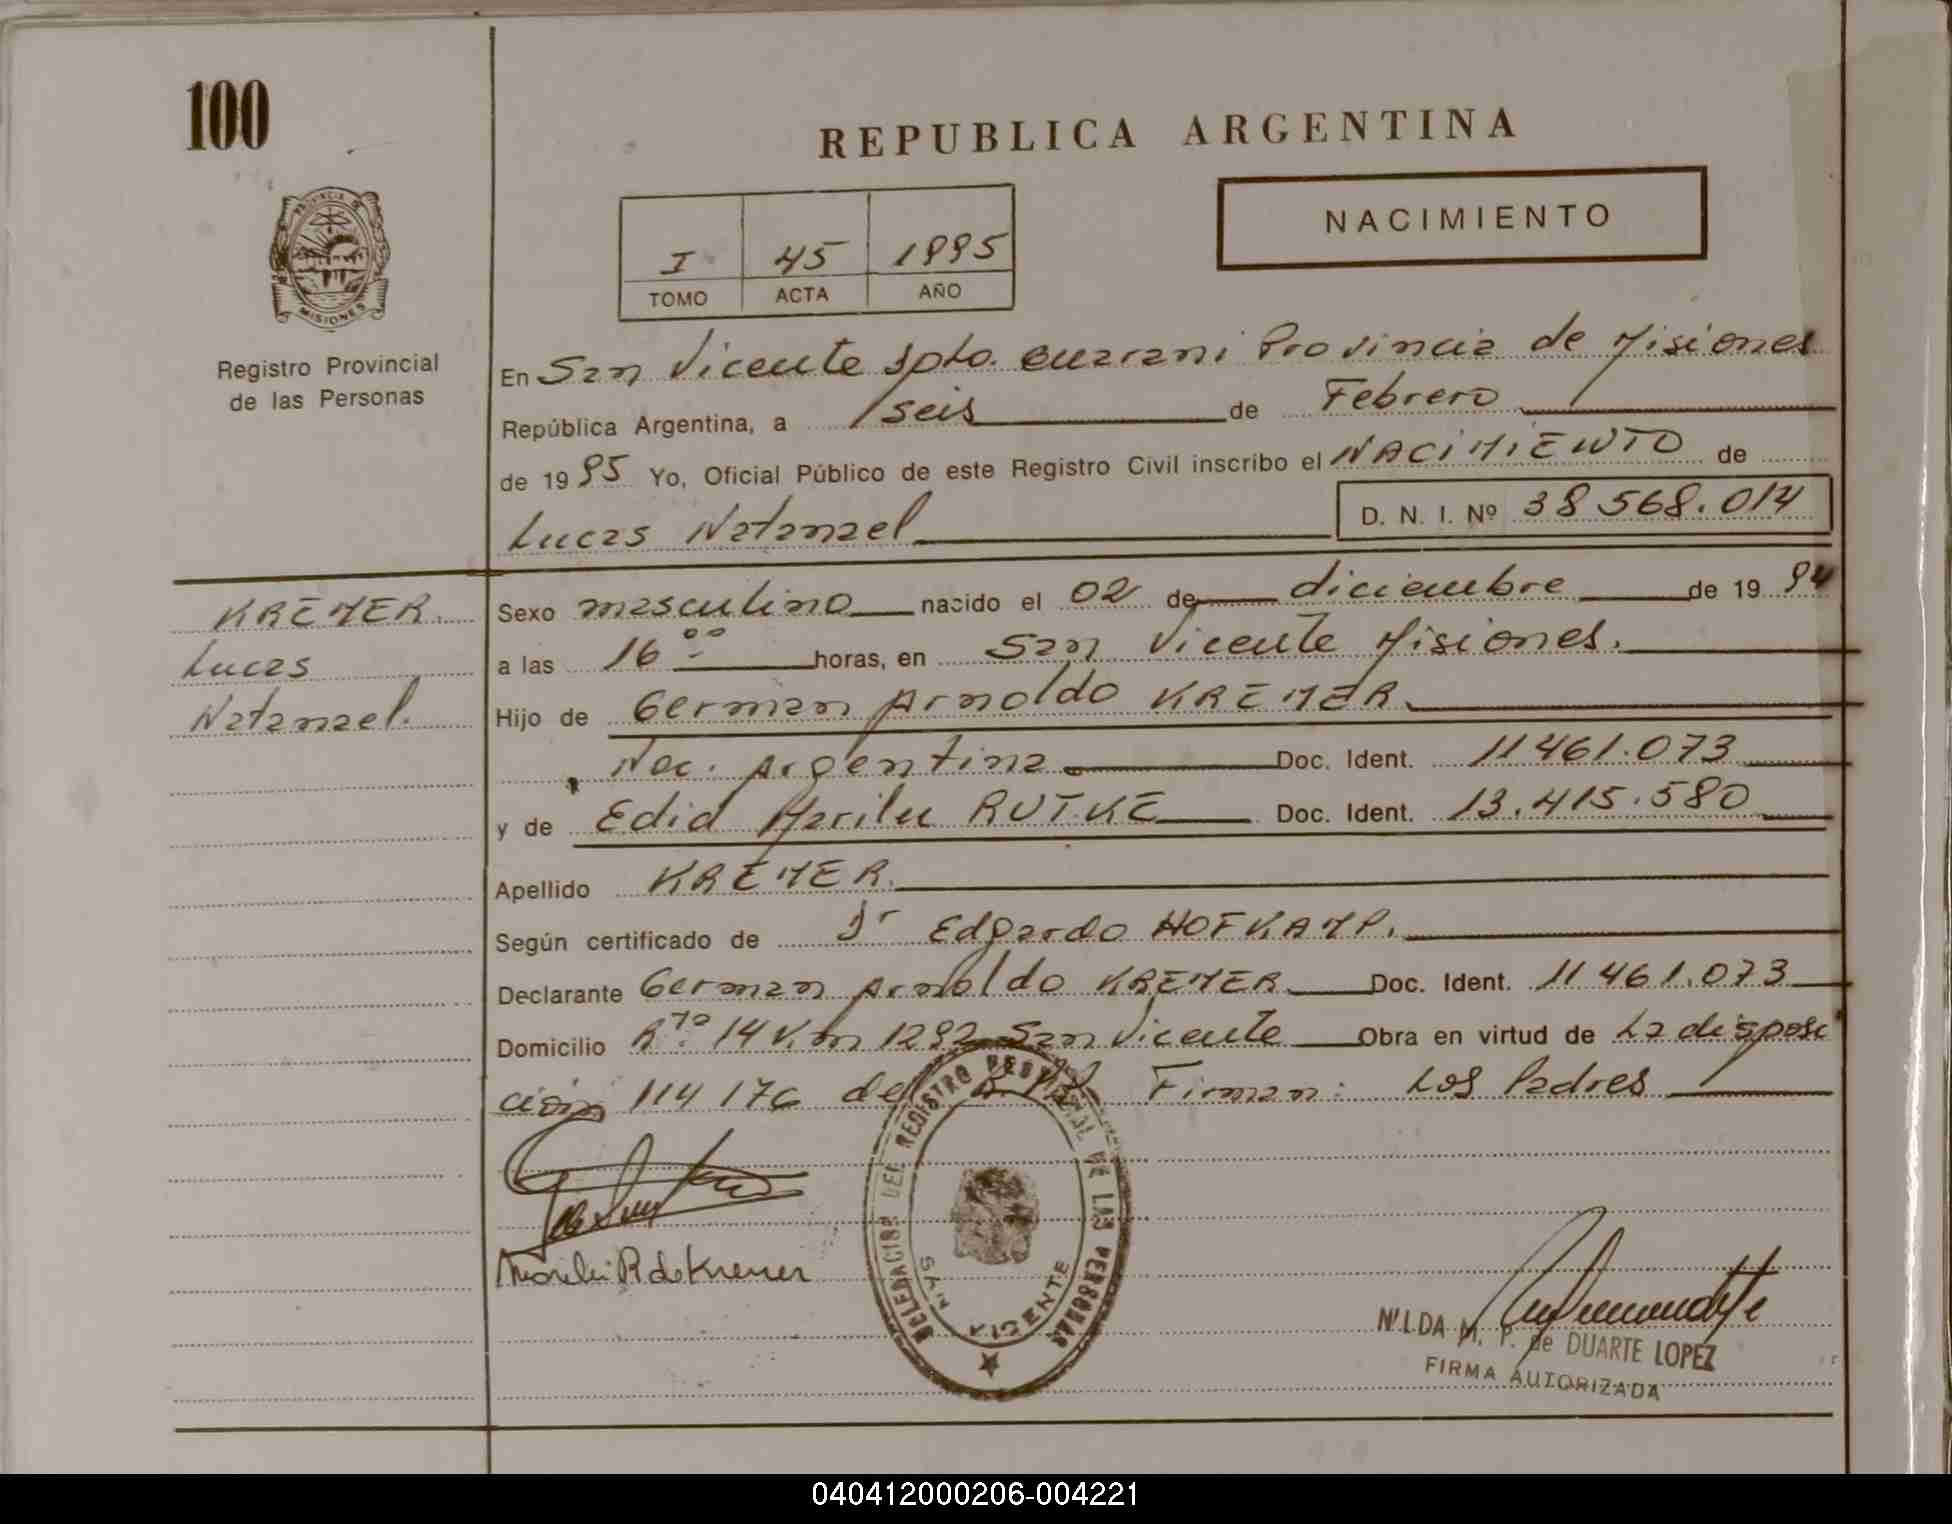 100
REPUBLICA ARGENTINA
NACIMIENTO
I 45 1995
TOMO ACTA AÑO
PROVINCIA DE
MISIONES
Registro Provincial
de las Personas
En San Vicente Dpto. Guarani Provincia de Misiones
República Argentina, a seis de Febrero
de 1995 Yo, Oficial Público de este Registro Civil inscribo el NACIMIENTO de
Lucas Natanael D. N. I. Nº 38 568.014
KREMER.
Lucas
Natanael.
Sexo masculino nacido el 02 de diciembre de 1994
a las 16 00 horas, en San Vicente Misiones.
Hijo de German Arnoldo KREMER
Nac. Argentina Doc. Ident. 11461.073
y de Edid Marilu RUTKE Doc. Ident. 13.415.580
Apellido KREMER.
Según certificado de Dr Edgardo HOFKAMP.
Declarante German Arnoldo KREMER Doc. Ident. 11461.073
Domicilio Rta. 14 Km 1292 San Vicente Obra en virtud de La disposi
ción 114176 del Firman: Los Padres
DELEGACION DEL REGISTRO PROVINCIAL DE LAS PERSONAS
SAN VICENTE
Marilu R de Kremer
NILDA M. P. de DUARTE LOPEZ
FIRMA AUTORIZADA
040412000206-004221